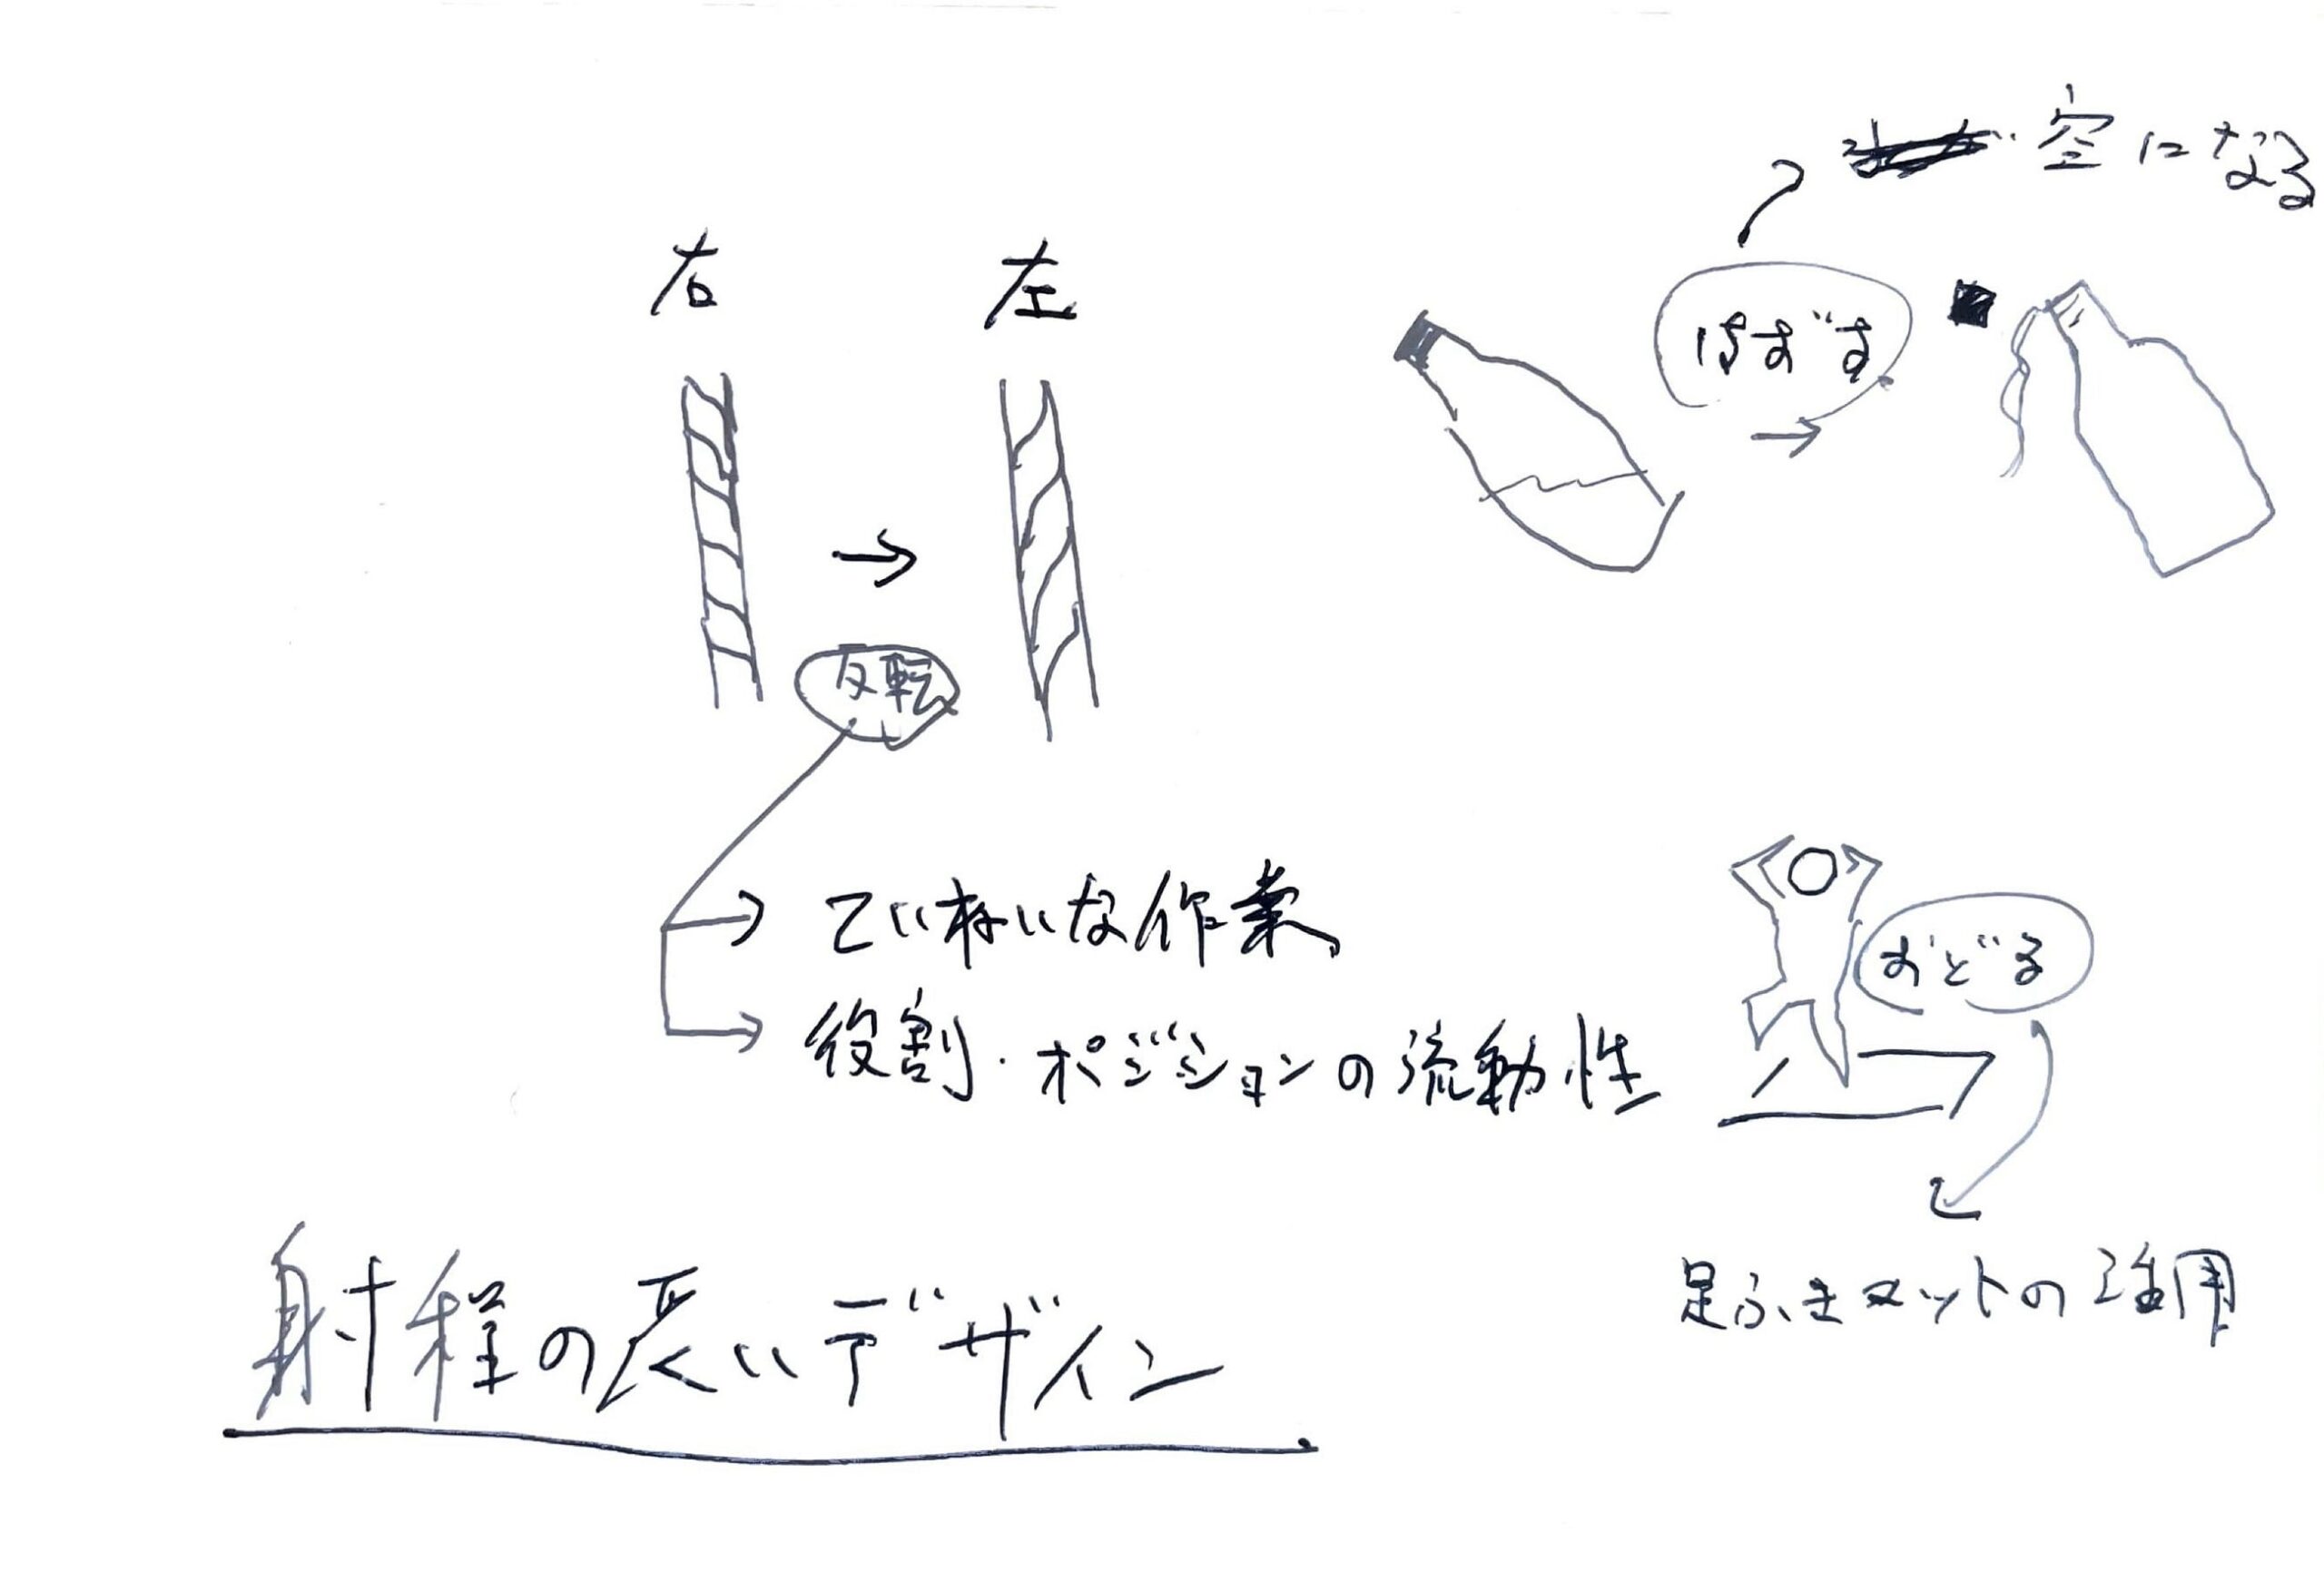 空になる
右
左
はずす
反転
ていねいな作業
おどる
役割・ポジションの流動性
射様の長いデザイン
足ふきマットの活用